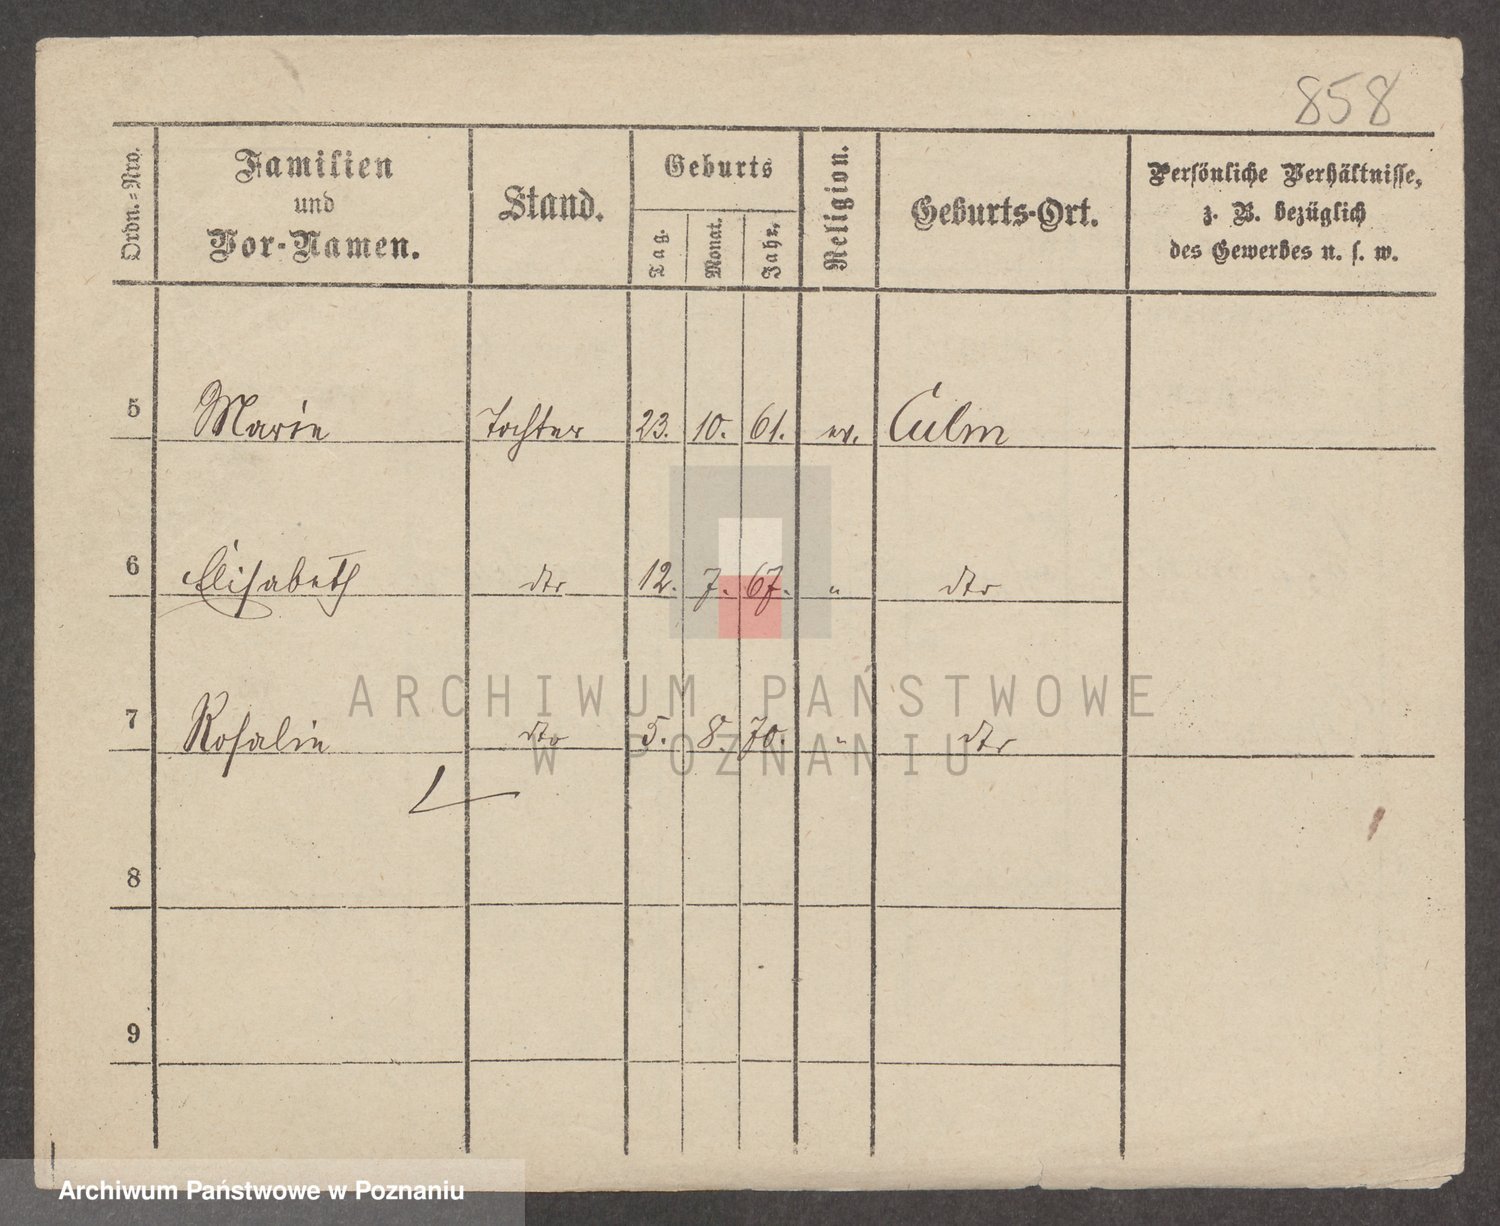 858
Ordn.-Nro.
Familien
und
Vor-Namen.
Stand.
Geburts
Tag.
Monat.
Jahr.
Religion.
Geburts-Ort.
Persönliche Verhältnisse,
z. B. bezüglich
des Gewerbes u. s. w.
5 Marie Tochter 23. 10. 61. ev. Culm
6 Elisabeth dto 12. 7. 67. " dto
7 Rosalie dto 5. 8. 70. " dto
8
9
ARCHIWUM PAŃSTWOWE
W POZNANIU
Archiwum Państwowe w Poznaniu